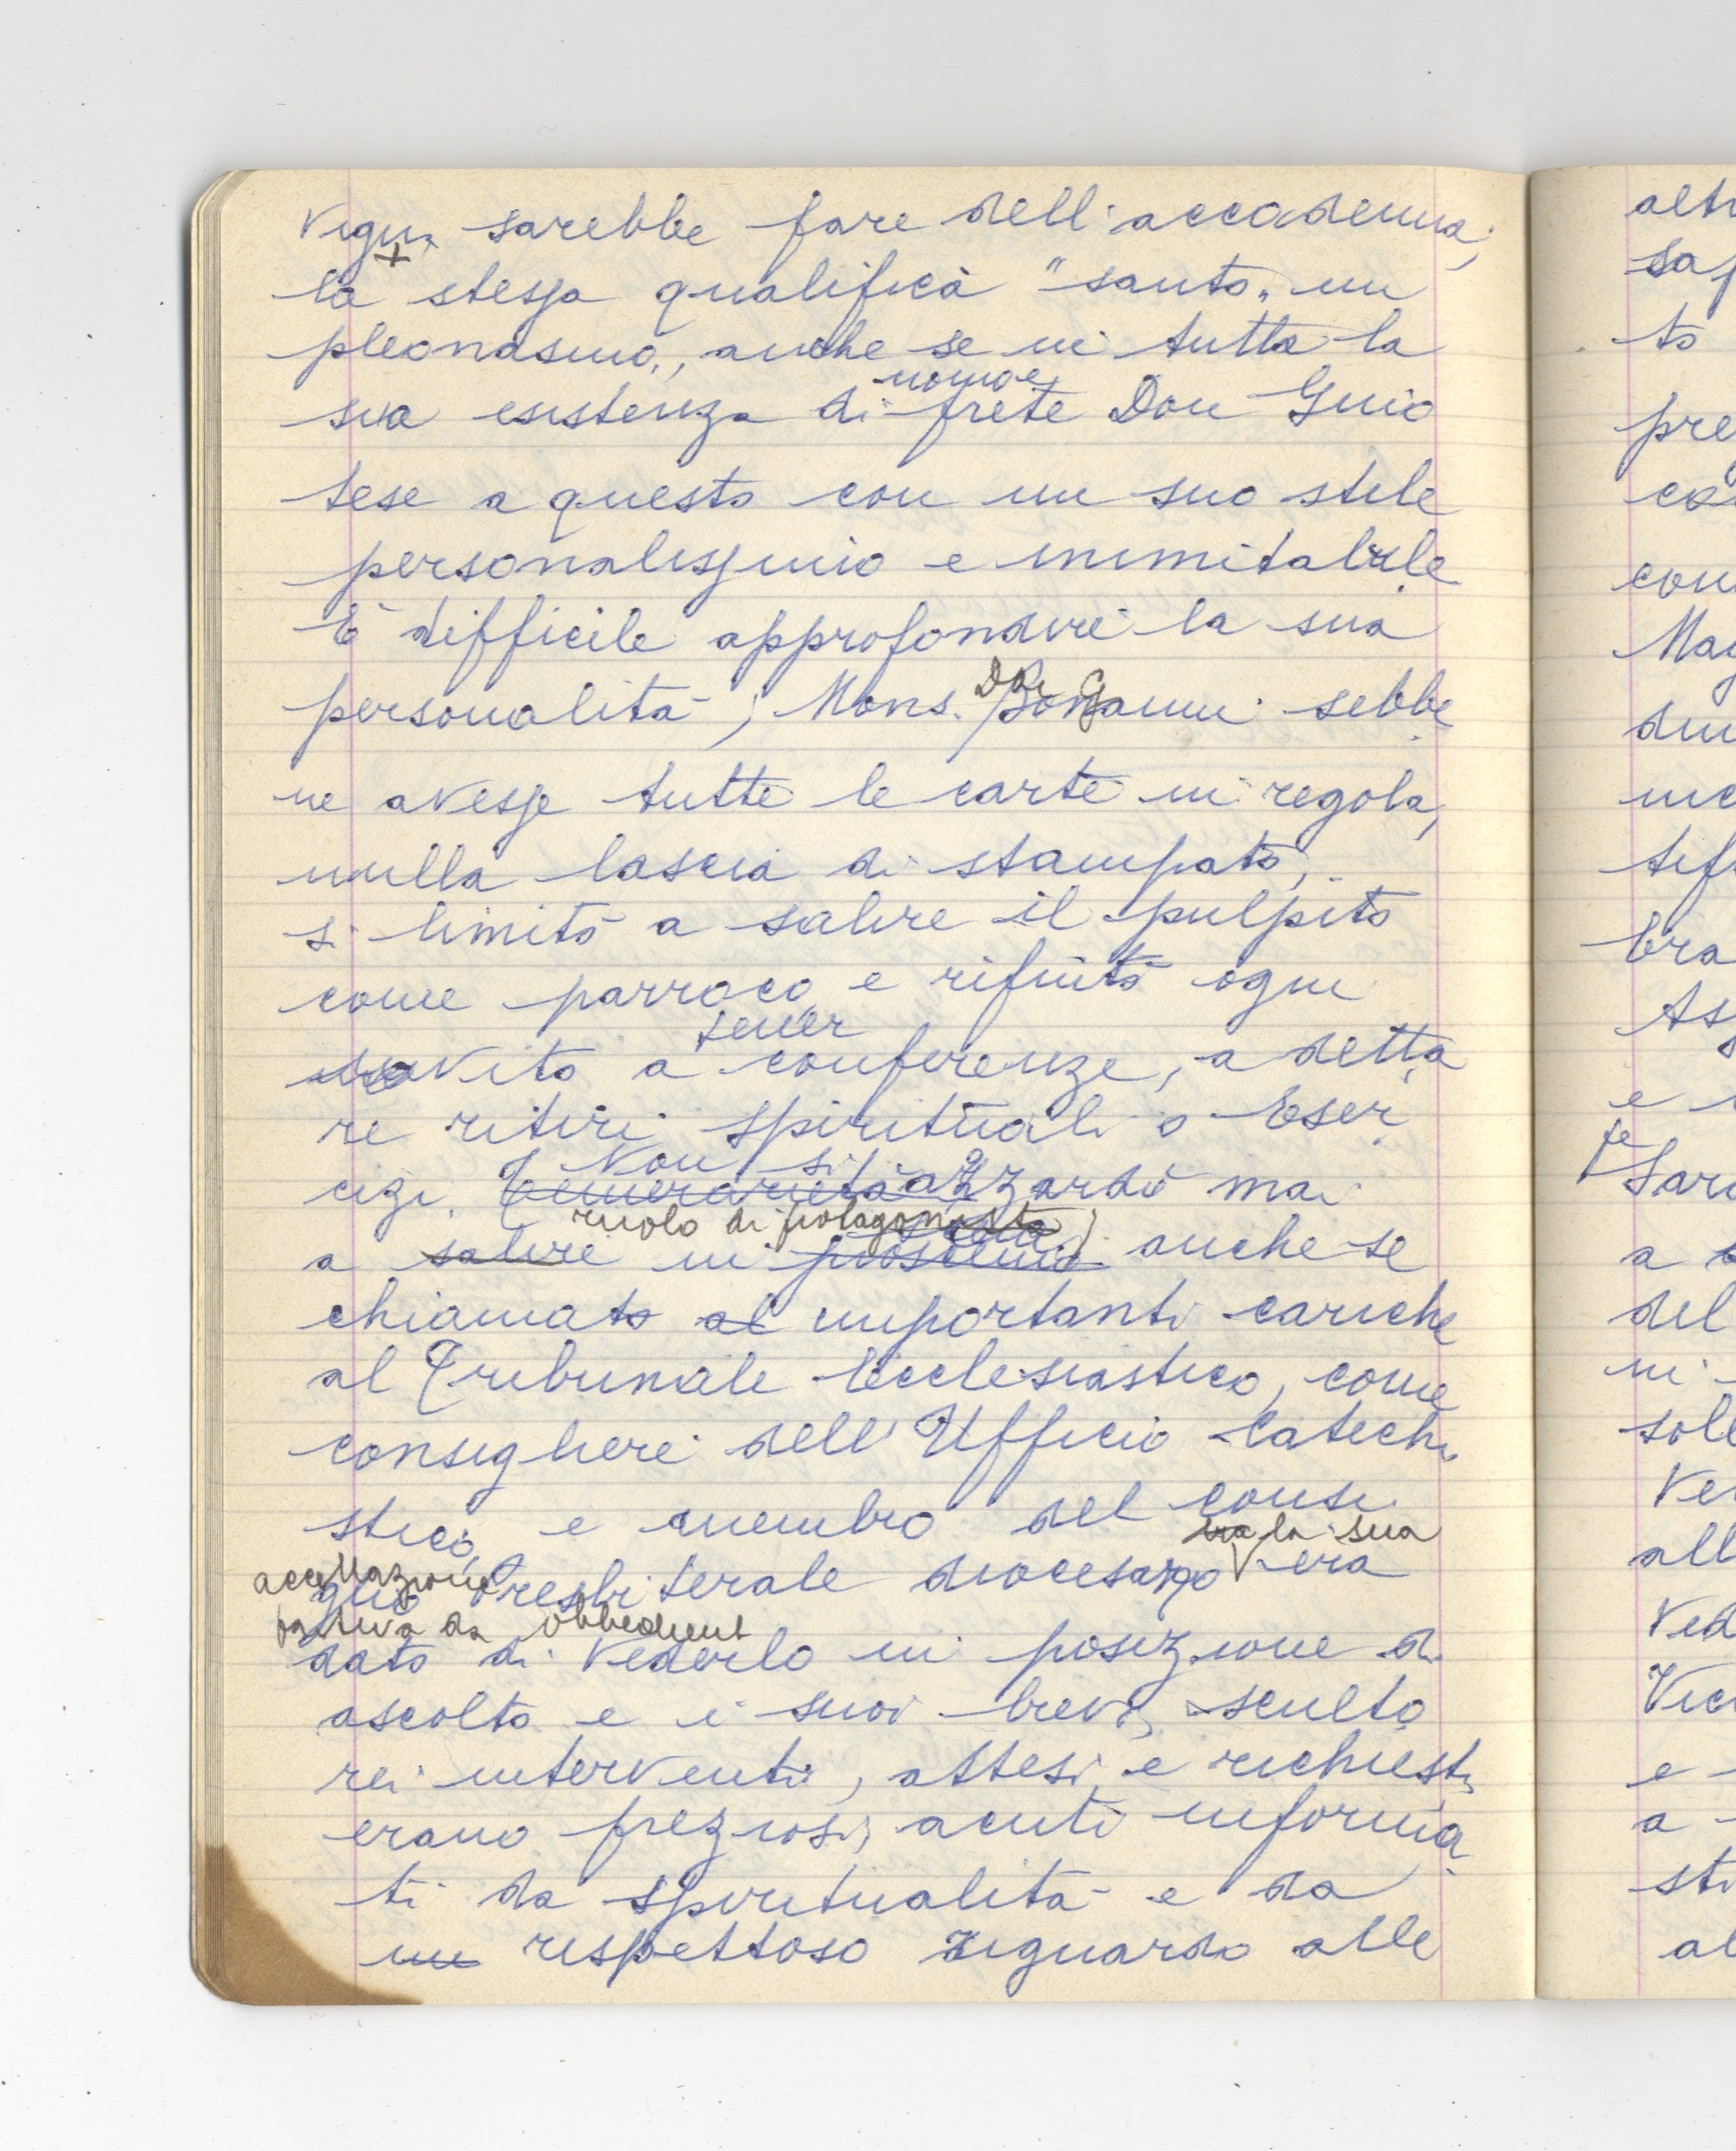 sarebbe fare dell'accademia,
la stessa qualifica "santo" un
pleonasmo, anche se in tutta la
uomo e
sua esistenza di prete Don Gino
tese a questo con un suo stile
personalissimo e inimitabile
È difficile approfondire la sua
personalità; Mons. Bongianni sebbe
ne avesse tutte le carte in regola,
nulla lascia di stampato,
si limitò a salire il pulpito
come parroco, e rifiutò ogni
tener
invito a conferenze, a detta
re ritiri spirituali o Eser
Non si
cizi. azzardò mai
ruolo di protagonista
a salire in proscenio anche se
chiamato al importanti cariche
al Tribunale Ecclesiastico, come
consigliere dell'Ufficio Catechi
stico, e membro del consi
la sua
accettazione
glio Presbiterale diocesano era
passiva da obbedient
dato di vederlo in posizione di
ascolto e i suoi brevi, sculto
rei interventi, attesi e richiesti
erano preziosi, acuti informa
ti da spiritualità e da
un rispettoso riguardo alle
altri
to
pre
con
e
a
del
in
e
a
sti
al